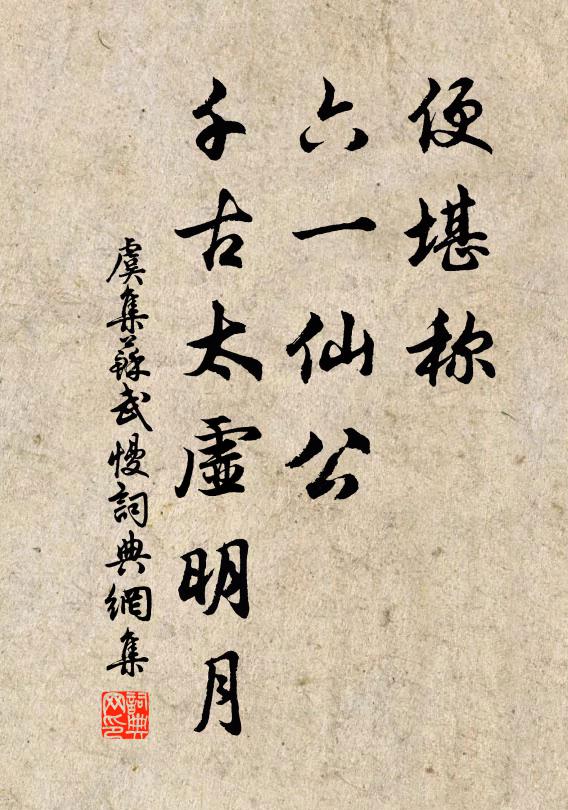 便堪称
六一仙公
千古太虚明月
虞集蘇武慢詞典網集
詞典网印